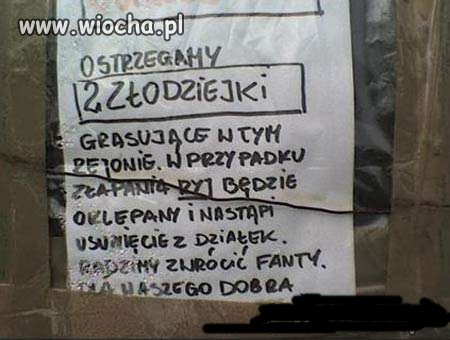 www.wiocha.pl
OSTRZEGAMY
2 ZŁODZIEJKI
GRASUJĄCE W TYM
REJONIE. W PRZYPADKU
ZŁAPANIA RYJ BĘDZIE
OKLEPANY I NASTĄPI
USUNIĘCIE Z DZIAŁEK.
RADZIMY ZWRÓCIĆ FANTY.
DLA NASZEGO DOBRA